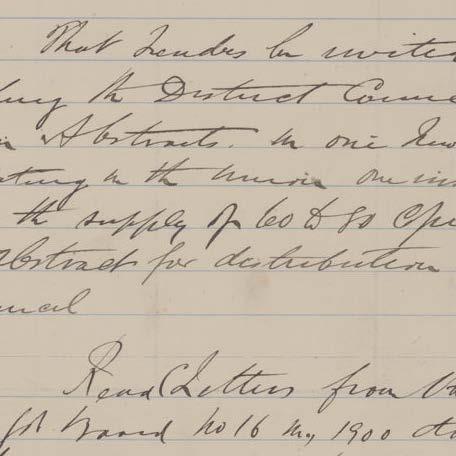 That Tenders be invite
the District Counc
Abstracts. in one New
in the one in
the supply of 60 to 80 Cpi
Abstract for distribution
uncil
Read Letters from
Board No 16 May 1900